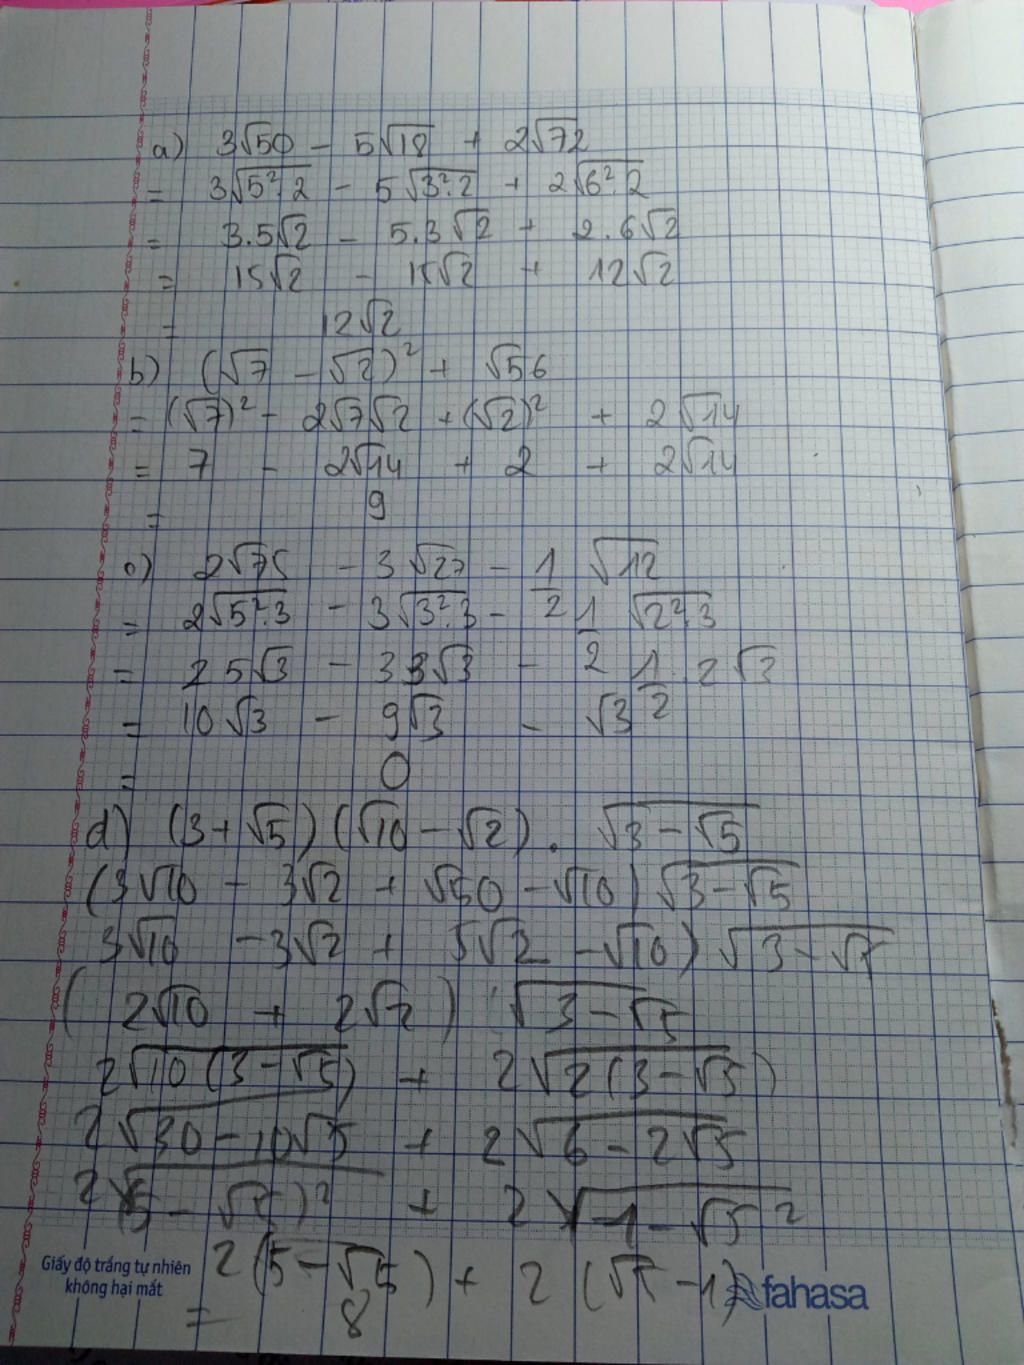 a) 3√50 - 5√18 + 2√72
= 3√5².2 - 5√3².2 + 2√6².2
= 3.5√2 - 5.3√2 + 2.6√2
= 15√2 - 15√2 + 12√2
= 12√2
b) (√7 - √2)² + √56
= (√7)² - 2√7√2 + (√2)² + 2√14
= 7 - 2√14 + 2 + 2√14
= 9
c) 2√75 - 3√27 - 1/2 √12
= 2√5².3 - 3√3².3 - 1/2 √2².3
= 2 5√3 - 3 3√3 - 1/2 . 2√3
= 10√3 - 9√3 - √3
= 0
d) (3+√5)(√10 - √2) . √3-√5
(3√10 - 3√2 + √50 - √10) √3-√5
3√10 - 3√2 + 5√2 - √10) √3-√5
(2√10 + 2√2) √3-√5
2√10(3-√5) + 2√2(3-√5)
2√30-10√5 + 2√6-2√5
2√(5-√5)² + 2√1-√5²
2(5-√5) + 2(√5-1)
= 8
Giấy độ trắng tự nhiên
không hại mắt
fahasa